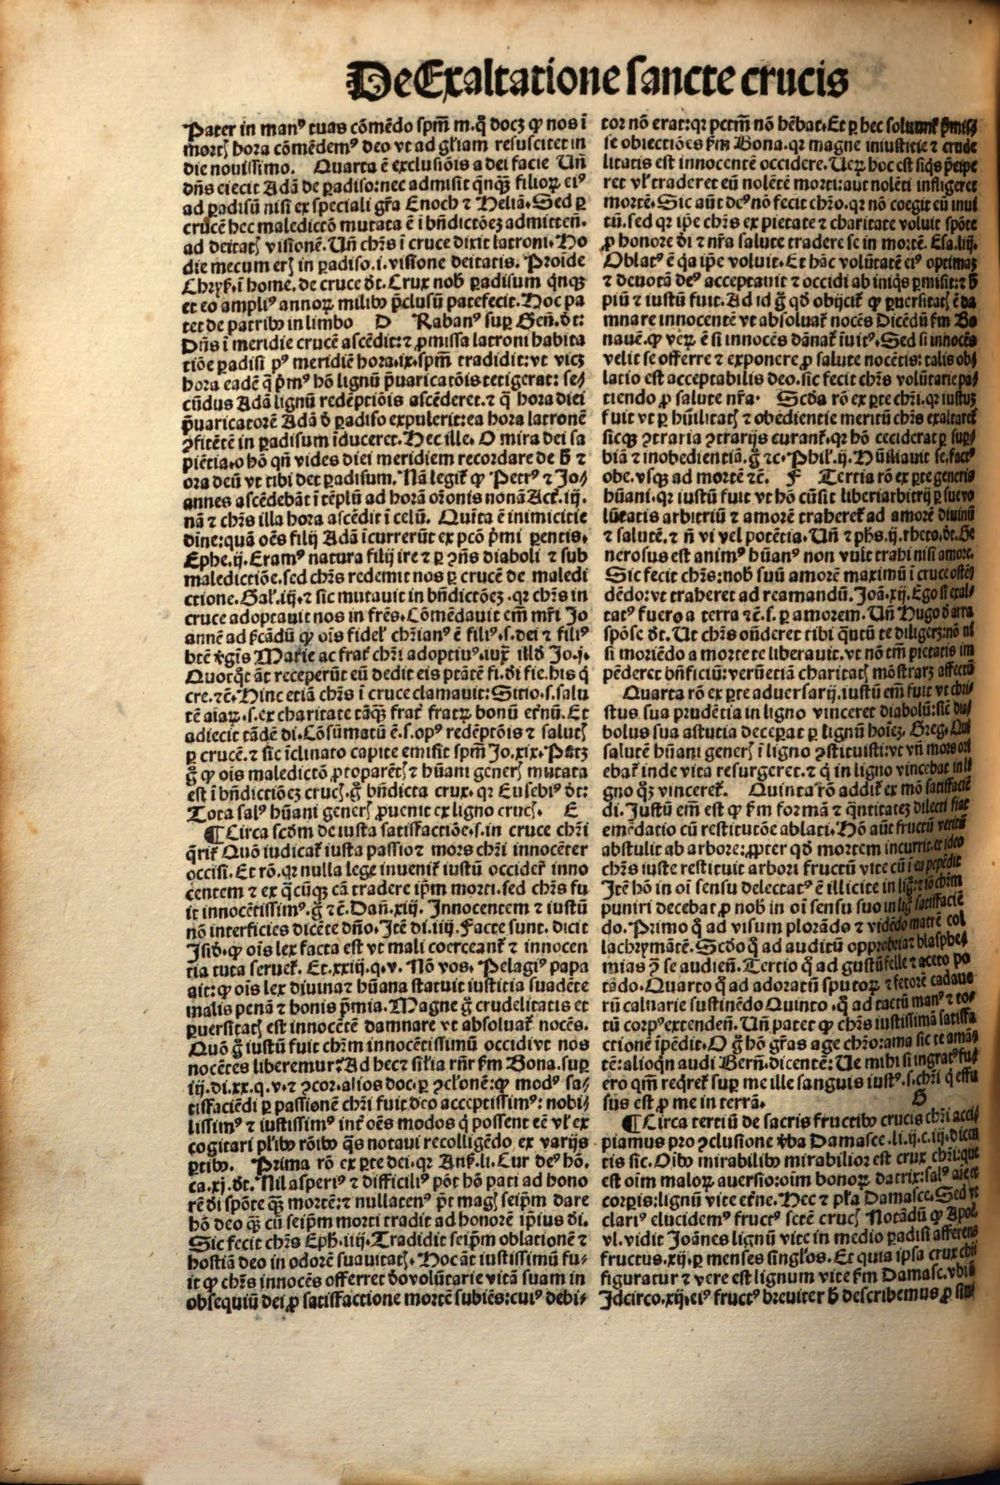 De Exaltatione sancte crucis
Pater in manꝰ tuas cōmēdo spm̄ m. q̄ docꝫ ꝙ nos ī
mortꝭ hora cōmēdemꝰ deo vt ad gl̄iam resuscitet in
die nouissimo. Quarta ē exclusiōis a dei facie Un̄
dn̄s eiecit Adā de ꝑadiso: nec admisit qͥnqꝫ filioꝝ eiꝰ
ad ꝑadisū nisi ex speciali gr̄a Enoch ⁊ Heliā. Sed ꝑ
crucē hec maledictō mutata ē ī bn̄dictōeꝫ admitten̄.
ad deitatꝭ visionē. Un̄ chrs̄ ī cruce dixit latroni. Ho
die mecum erꝭ in ꝑadiso .i. visione deitatis. Proīde
Chryẜ. ī home. de cruce dt̄. Crux nob̄ ꝑadisum qͥnqꝫ
et eo ampliꝰ annoꝝ milibꝰ p̄clusū patefecit. Hoc pa
tet de patribꝰ in limbo D Rabanꝰ suꝑ Gen̄. dt̄:
Dn̄s ī meridie crucē ascēdit: ⁊ ꝓmissa latroni habita
tiōe ꝑadisi pꝰ meridiē hora .ix. spm̄ tradidit: vt vicꝫ
hora eadē q̄ pͥmꝰ hō lignū p̄uaricatōis tetigerat: se⸗
cūdus Adā lignū redēptiōis ascēderet. ⁊ q̄ hora diei
p̄uaricatorē Adā ꝺ̄ ꝑadiso expulerit: ea hora latronē
ꝯfitētē in ꝑadisum īduceret. Hec ille. O mira dei sa
piētia. o hō qn̄ vides diei meridiem recordare de h̄ ⁊
ora deū vt tibi det ꝑadisum. Nā legit᷑ ꝙ Petrꝰ ⁊ Jo⸗
annes ascēdebāt ī tēplū ad horā orōnis nonā Act᷑. iij.
nā ⁊ chrs̄ illa hora ascēdit ī celū. Quīta ē inimicitie
dīne: quā oēs filij Adā īcurrerūt ex pcō pͥmi ꝑentis.
Ephe. ij. Eramꝰ natura filij ire ⁊ ꝑ ꝯn̄s diaboli ⁊ sub
maledictiōe. sed chrs̄ redemit nos ꝑ crucē de maledi
ctione. Gal᷑. iij. ⁊ sic mutauit in bn̄dictōeꝫ. qꝛ chrs̄ in
cruce adoptauit nos in frēs. Cōmēdauit em̄ mr̄i Jo
annē ad sc̄adū ꝙ oīs fidel᷑ chr̄ianꝰ ē filiꝰ .s. dei ⁊ filiꝰ
btē v̄gīs Marie ac frat᷑ chr̄i adoptiuꝰ. iux᷑ illd̄ Jo. j.
Quotqͦt āt receperūt eū dedit eis ptātē fi. di fie. his q̄
cre. ⁊ē. Hinc etiā chrs̄ ī cruce clamauit: Sitio .s. salu
tē aīaꝝ .s. ex charitate tāqꝫ frat᷑ fratꝝ bonū et̄nū. Et
adiecit tādē di. Cōsūmatū ē .s. opꝰ redēptōis ⁊ salutꝭ
ꝑ crucē. ⁊ sic īclinato capite emisit spm̄ Jo. xix. Patꝫ
g̊ ꝙ oīs maledictō ꝓtoparētꝭ ⁊ hūani generꝭ mutata
est ī bn̄dictiōeꝫ crucꝭ. g̊ bn̄dicta crux. qꝛ Eusebiꝰ dt̄:
Tota salꝰ hūani generꝭ ꝓuenit ex ligno crucꝭ. E
¶ Circa scd̄m de iusta satisfactiōe .s. in cruce chr̄i
qͣrit᷑ Quō iudicat᷑ iusta passio ⁊ mors chr̄i innocēter
occisi. Et rō. qꝛ nulla lege inuenit᷑ iustū occider᷑ inno
centem ⁊ ex qͣcūqꝫ cā tradere ip̄m morti. sed chrs̄ fu
it innocētissimꝰ. g̊ ⁊ē. Dan̄. xiij. Innocentem ⁊ iustū
nō interficies dicēte dn̄o. Jtē di. iiij. Facte sunt. dicit
Jsid̄. ꝙ oīs lex facta est vt mali coerceant᷑ ⁊ innocen
tia tuta seruet᷑. Et. xxiij. q. v. Nō vos. Pelagiꝰ papa
ait: ꝙ oīs lex diuina ⁊ hūana statuit iusticia suadēte
malis penā ⁊ bonis p̄mia. Magne g̊ crudelitatis et
ꝑuersitatꝭ est innocētē damnare vt absoluat᷑ nocēs.
Quō g̊ iustū fuit chr̄m innocētissimū occidi vt nos
nocētes liberemur? Ad hec ⁊ sil̄ia rn̄r ẜm Bona. suꝑ
iij. di. xx. q. v. ⁊ ꝯcor. alios doc. ꝑ ꝯclōnē: ꝙ modꝰ sa⸗
tisfaciēdi ꝑ passionē chr̄i fuit deo acceptissimꝰ: nobi⸗
lissimꝰ ⁊ iustissimꝰ int᷑ oēs modos q̄ possent eē vl᷑ ex
cogitari pl᷑ibꝰ rōibꝰ qͣs notaui recolligēdo ex varijs
ꝑtibꝰ. Prima rō ex ꝑte dei. qꝛ Anẜ. li. Cur deꝰ hō.
ca. xj. dt̄. Nil asperiꝰ ⁊ difficiliꝰ pōt hō pati ad hono
rē di spōte qͣꝫ mortē: ⁊ nullatenꝰ pt̄ magꝭ seip̄m dare
hō deo qͣꝫ cū seip̄m morti tradit ad honorē ip̄ius di.
Sic fecit chrs̄ Eph. iiij. Tradidit seip̄m oblationē ⁊
hostiā deo in odorē suauitatꝭ. Hoc āt iustissimū fu⸗
it ꝙ chrs̄ innocēs offerret ꝺ̄o volūtarie vitā suam in
obsequiū dei ꝓ satisfactione mortē subiēs: cuiꝰ debi⸗
tor nō erat: qꝛ pctm̄ nō hēbat. Et ꝑ hec soluunt᷑ p̄miss
se obiectiōes ẜm Bona. qꝛ magne iniusticie ⁊ crude
litatis est innocentē occidere. Ueꝝ hoc est si qͥs p̄cipe
ret vl᷑ traderet eū nolētē morti: aut nolēti infligeret
mortē. Sic aūt deꝰ nō fecit chr̄o. qꝛ nō coegit eū inui
tū. sed qꝛ ip̄e chrs̄ ex pietate ⁊ charitate voluit spōte
ꝓ honore di ⁊ nr̄a salute tradere se in mortē. Esa. liij.
Oblatꝰ ē qꝛ ip̄e voluit. Et hāc volūtatē eiꝰ optimaꝫ
⁊ deuotā deꝰ acceptauit ⁊ occidi ab iniqͥs ꝑmisit: ⁊ h̄
piū ⁊ iustū fuit. Ad id g̊ qd̄ obijcit᷑ ꝙ ꝑuersitatꝭ ē da
mnare innocentē vt absoluat᷑ nocēs Dicēdū ẜm Bo
nauē. ꝙ veꝝ ē si innocēs dānat᷑ īuitꝰ. Sed si innocēs
velit se offerre ⁊ exponere ꝓ salute nocētis: talis ob⸗
latio est acceptabilis deo. sic fecit chrs̄ volūtarie pa⸗
tiendo ꝓ salute nr̄a. Scd̄a rō ex ꝑte chr̄i. qꝛ iustuꝫ
fuit vt ꝑ hūilitatꝭ ⁊ obedientie meritū chrs̄ exaltaret᷑
sicqꝫ ꝯtraria ꝯtrarijs curant᷑. qꝛ hō ceciderat ꝑ suꝑ⸗
biā ⁊ inobedientiā. g̊ ⁊c. Phil᷑. ij. Hūiliauit se. factꝰ
obe. vsqꝫ ad mortē ⁊ē. F Tertia rō ex ꝑte generis
hūani. qꝛ iustū fuit vt hō cū sit liberi arbitrij ꝑ sue vo
lūtatis arbitriū ⁊ amorē traheret᷑ ad amorē diuinū
⁊ salutē. ⁊ n̄ vi vel potētia. Un̄ ⁊ phs̄. ij. rheto. dt̄. Ge
nerosus est animꝰ hūanꝰ non vult trahi nisi amore.
Sic fecit chrs̄: nob̄ suū amorē maximū ī cruce ostē⸗
dēdo: vt traheret ad reamandū. Joā. xij. Ego si exal⸗
tatꝰ fuero a terra ⁊ē .s. ꝑ amorem. Un̄ Hugo ꝺ̄ arra
spōse dt̄. Ut chrs̄ on̄deret tibi qͣntū te diligeꝫ: nō ni
si moriēdo a morte te liberauit. vt nō tm̄ pietatis im
pēderet bn̄ficiū: verūetiā charitatꝭ mōstraꝫ affectū
Quarta rō ex ꝑte aduersarij. iustū em̄ fuit vt chri⸗
stus sua prudētia in ligno vinceret diabolū: sicut dia⸗
bolus sua astutia deceperat ꝑ lignū hoīeꝫ. Greg. Qui
salutē hūani generꝭ ī ligno ꝯstituisti: vt vn̄ mors ori
ebat᷑ inde vita resurgeret. ⁊ q̄ in ligno vincebat in li⸗
gno qͦꝫ vinceret᷑. Quinta rō addit᷑ ex mō satisfacie
di. Justū em̄ est ꝙ ẜm formā ⁊ qͣntitateꝫ delicti fiat
emēdatio cū restitutōe ablati. Hō aūt fructū vetitū
abstulit ab arbore: ꝓpter qd̄ mortem incurrit. et ideo
chrs̄ iuste restituit arbori fructū vite cū ī ea pepēdit
Jtē hō in oī sensu delectatꝰ ē illicite in lig. iō chr̄m
puniri decebat ꝓ nob̄ in oī sensu suo in lig. satisfaciē
do. Primo q̄ ad visum plorādo ⁊ vidēdo matrē col
lachrymātē. Scd̄o q̄ ad auditū opprobria ⁊ blasphe⸗
mias ꝯͣ se audien̄. Tertio q̄ ad gustū felle ⁊ aceto po
tādo. Quarto q̄ ad odoratū sputoꝝ ⁊ fetorē cadaue
rū caluarie sustinēdo Quinto. q̄ ad tactū manꝰ ⁊ to⸗
tū corpꝰ extenden̄. Un̄ patet ꝙ chrs̄ iustissimā satisfa
ctionē īpēdit. O g̊ hō gr̄as age chr̄o: ama sic te amā⸗
tē: alioqn̄ audi Bern̄. dicentē: Ue mihi si ingratꝰ fu⸗
ero qm̄ reqͥret᷑ suꝑ me ille sanguis iustꝰ .s. chr̄i q̄ effu
sus est ꝓ me in terrā. G
¶ Circa tertiū de sacris fructibꝰ crucis chr̄i acci⸗
piamus pro ꝯclusione v̄ba Damasce. li. ij. c. iij. dicen
tis sic. Oībꝰ mirabilibꝰ mirabilior est crux chr̄i: que
est oīm maloꝝ auersio: oīm bonoꝝ datrix: salꝰ aīe et
corpis: lignū vite et̄ne. Hec ⁊ pl᷑a Damasce. Sed vt
clariꝰ elucidemꝰ fructꝰ scte crucꝭ Notādū ꝙ Apol.
vl. vidit Joānes lignū vite in medio ꝑadisi afferens
fructus. xij. ꝑ menses singl᷑os. Et quia ipsa crux chr̄i
figuratur ⁊ vere est lignum vite ẜm Damasc. vbi s.
Jdcirco. xij. eiꝰ fructꝰ breuiter h̄ describemus ꝓ sin⸗